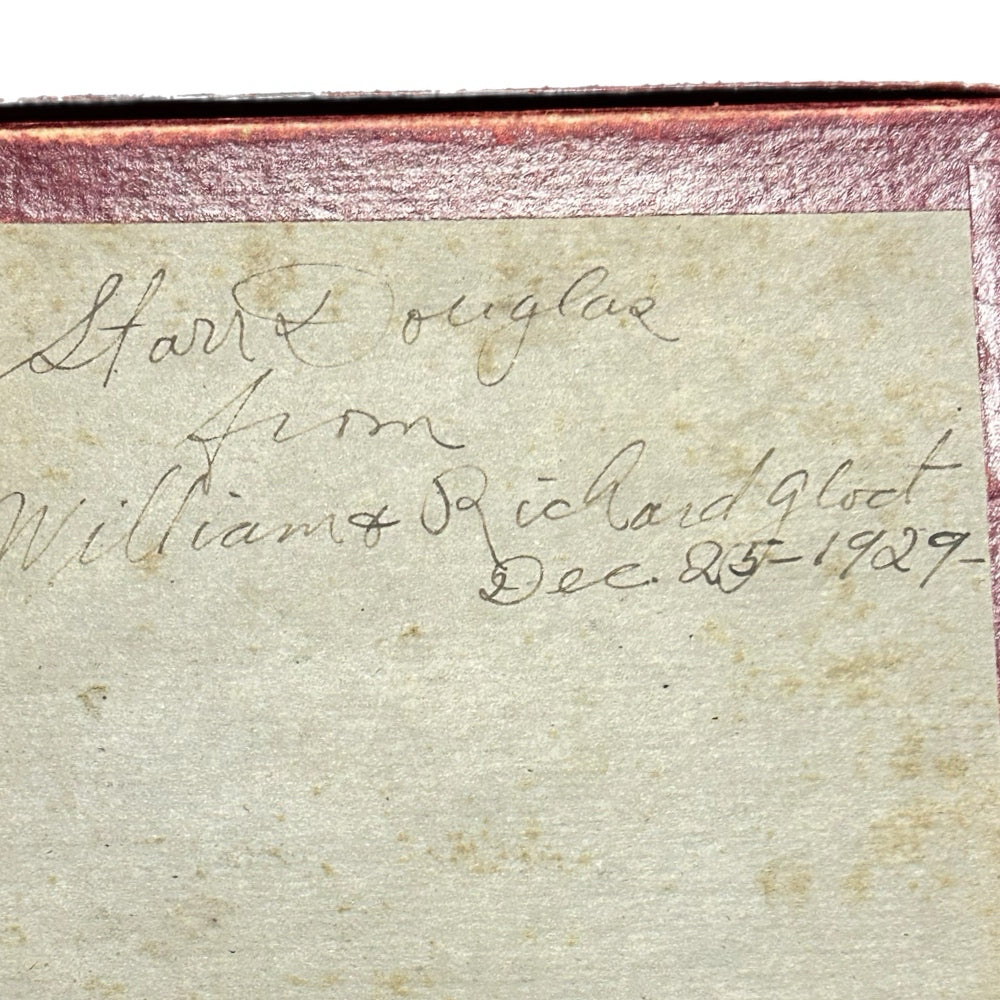 Starr & Douglas
from
William & Richard Glod
Dec. 25-1929-